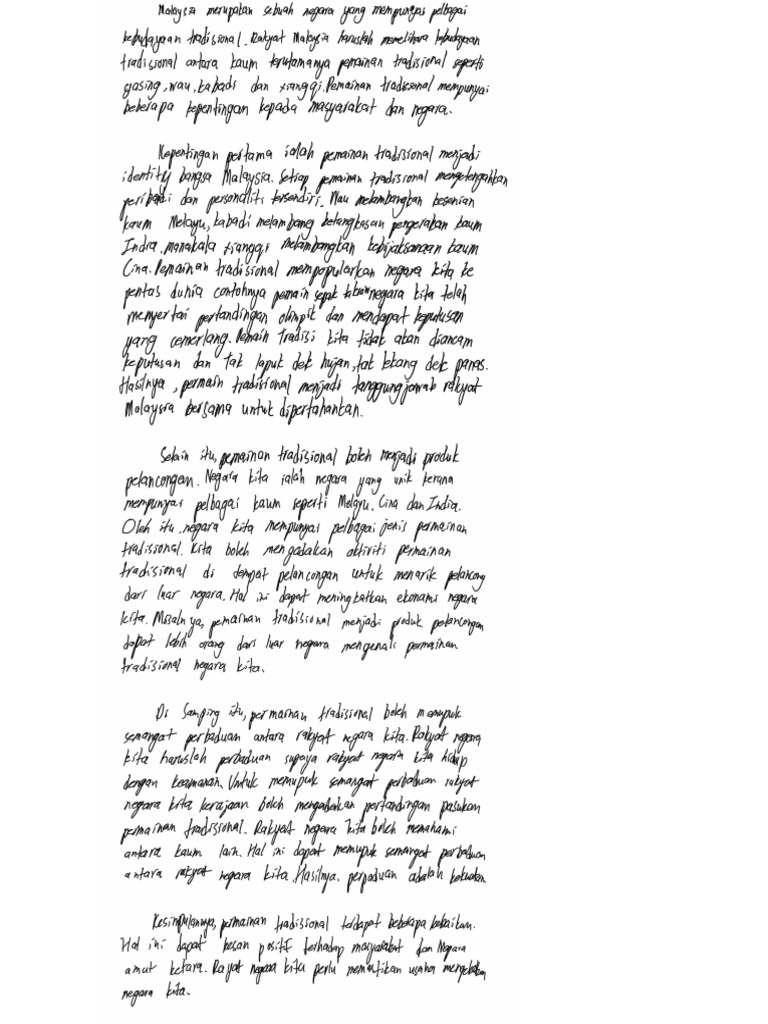 Malaysia merupakan sebuah negara yang mempunyai pelbagai
kebudayaan tradisional. Rakyat Malaysia haruslah memelihara kebudayaan
tradisional antara kaum terutamanya pemainan tradisional seperti
gasing, wau, kabadi dan xiangqi. Pemainan tradisional mempunyai
beberapa kepentingan kepada masyarakat dan negara.
Kepentingan pertama ialah pemainan tradisional menjadi
identity bangsa Malaysia. Setiap pemainan tradisional mengetengahkan
peribadi dan personaliti tersendiri. Wau melambangkan kesenian
kaum Melayu, kabadi melambang ketangkasan pergerakan kaum
India. manakala xiangqi melambangkan kebijaksanaan kaum
Cina. Pemainan tradisional mempopularkan negara kita ke
pentas dunia contohnya pemain sepak takraw negara kita telah
menyertai pertandingan olimpik dan mendapat keputusan
yang cemerlang. Pemain tradisi kita tidak akan diancam
keputusan dan tak lapuk dek hujan, tak lekang dek panas.
Hasilnya, permain tradisional menjadi tanggungjawab rakyat
Malaysia bersama untuk dipertahankan.
Selain itu, pemainan tradisional boleh menjadi produk
pelancongan. Negara kita ialah negara yang unik kerana
mempunyai pelbagai kaum seperti Melayu, Cina dan India.
Oleh itu, negara kita mempunyai pelbagai jenis permainan
tradisional. Kita boleh mengadakan aktiviti permainan
tradisional di tempat pelancongan untuk menarik pelancong
dari luar negara. Hal ini dapat meningkatkan ekonomi negara
kita. Misalnya, pemainan tradisional menjadi produk pelancongan
dapat lebih orang dari luar negara mengenali permainan
tradisional negara kita.
Di Samping itu, permainan tradisional boleh memupuk
semangat perbaduan antara rakyat negara kita. Rakyat negara
kita haruslah perbaduan supaya rakyat negara kita hidup
dengan keamanan. Untuk memupuk semangat perbaduan rakyat
negara kita kerajaan boleh mengadakan pertandingan pasukan
permainan tradisional. Rakyat negara kita boleh memahami
antara kaum lain. Hal ini dapat memupuk semangat perbaduan
antara rakyat negara kita. Hasilnya, perpaduan adalah kekuatan.
Kesimpulannya, permainan tradisional terdapat beberapa kebaikan.
Hal ini dapat kesan positif terhadap masyarakat dan Negara
amat ketara. Rayat negara kita perlu memastikan usaha
negara kita.